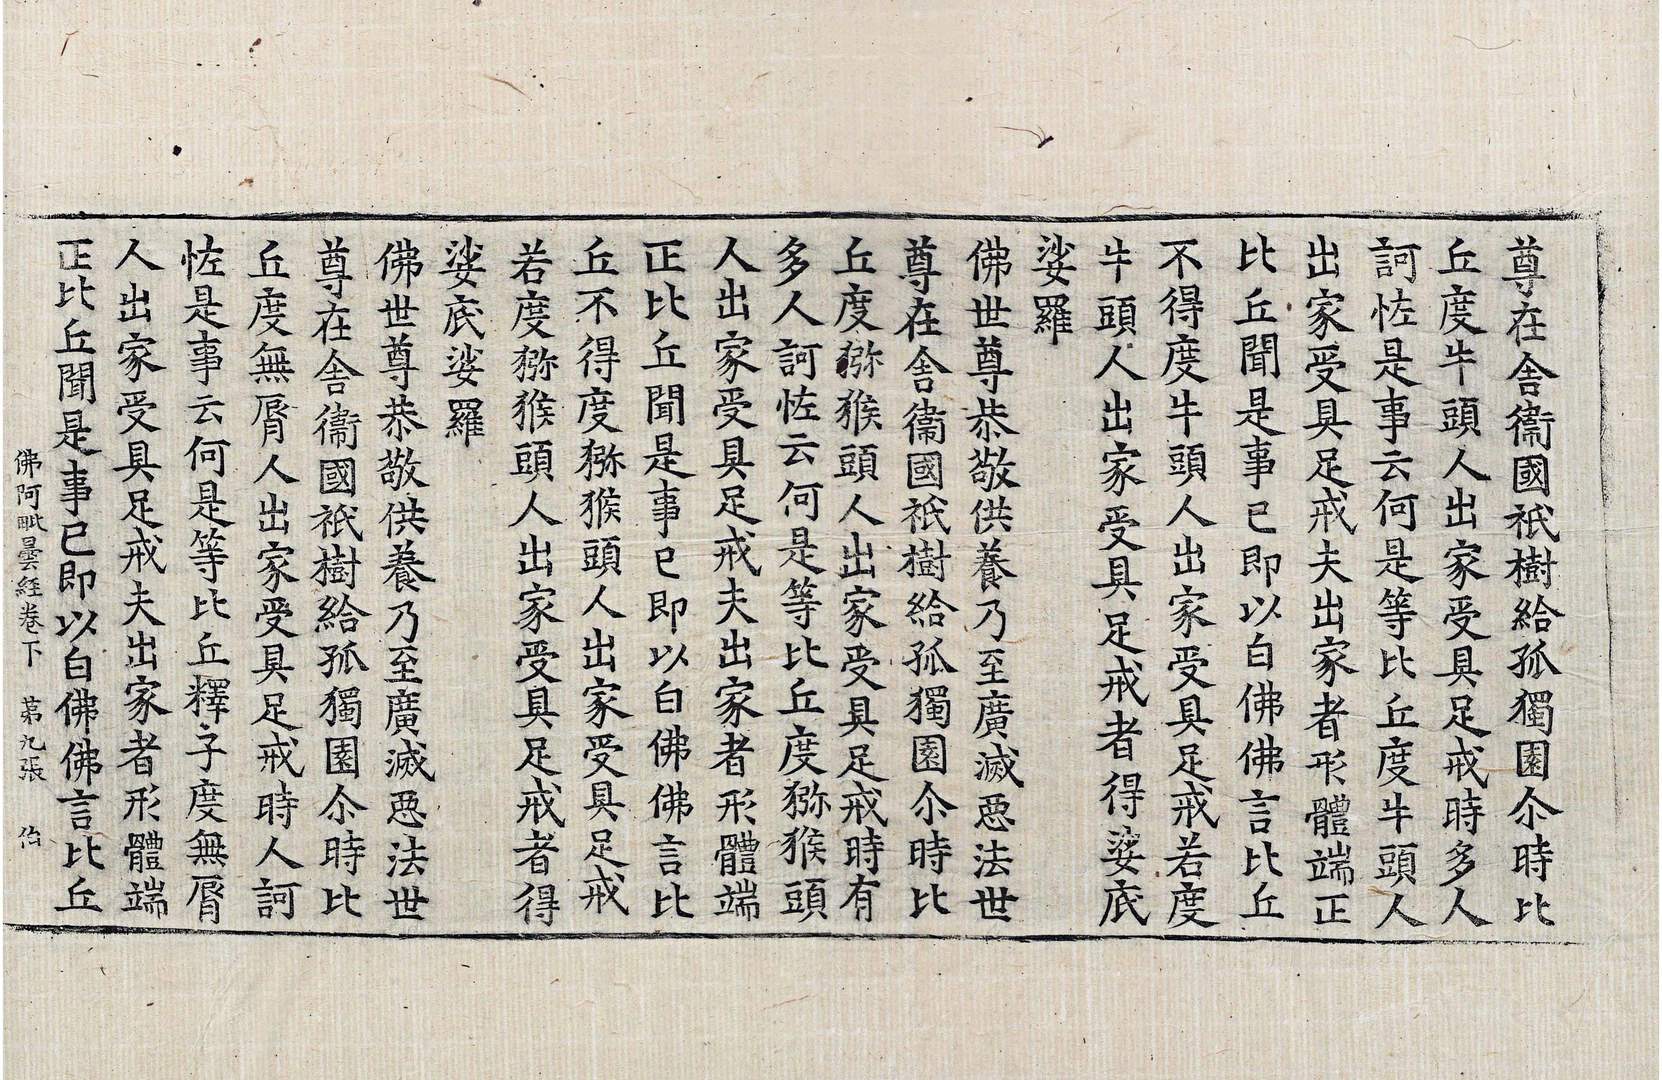 尊在舍衞國祇樹給孤獨園尒時比
丘度牛頭人出家受具足戒時多人
訶恠是事云何是等比丘度牛頭人
出家受具足戒夫出家者形體端正
比丘聞是事已即以白佛佛言比丘
不得度牛頭人出家受具足戒若度
牛頭人出家受具足戒者得娑底
娑羅
佛世尊恭敬供養乃至廣滅惡法世
尊在舍衞國祇樹給孤獨園尒時比
丘度獼猴頭人出家受具足戒時有
多人訶恠云何是等比丘度獼猴頭
人出家受具足戒夫出家者形體端
正比丘聞是事已即以白佛佛言比
丘不得度獼猴頭人出家受具足戒
若度獼猴頭人出家受具足戒者得
娑底娑羅
佛世尊恭敬供養乃至廣滅惡法世
尊在舍衞國祇樹給孤獨園尒時比
丘度無脣人出家受具足戒時人訶
恠是事云何是等比丘釋子度無脣
人出家受具足戒夫出家者形體端
正比丘聞是事已即以白佛佛言比丘
佛阿毗曇経卷下 第九張